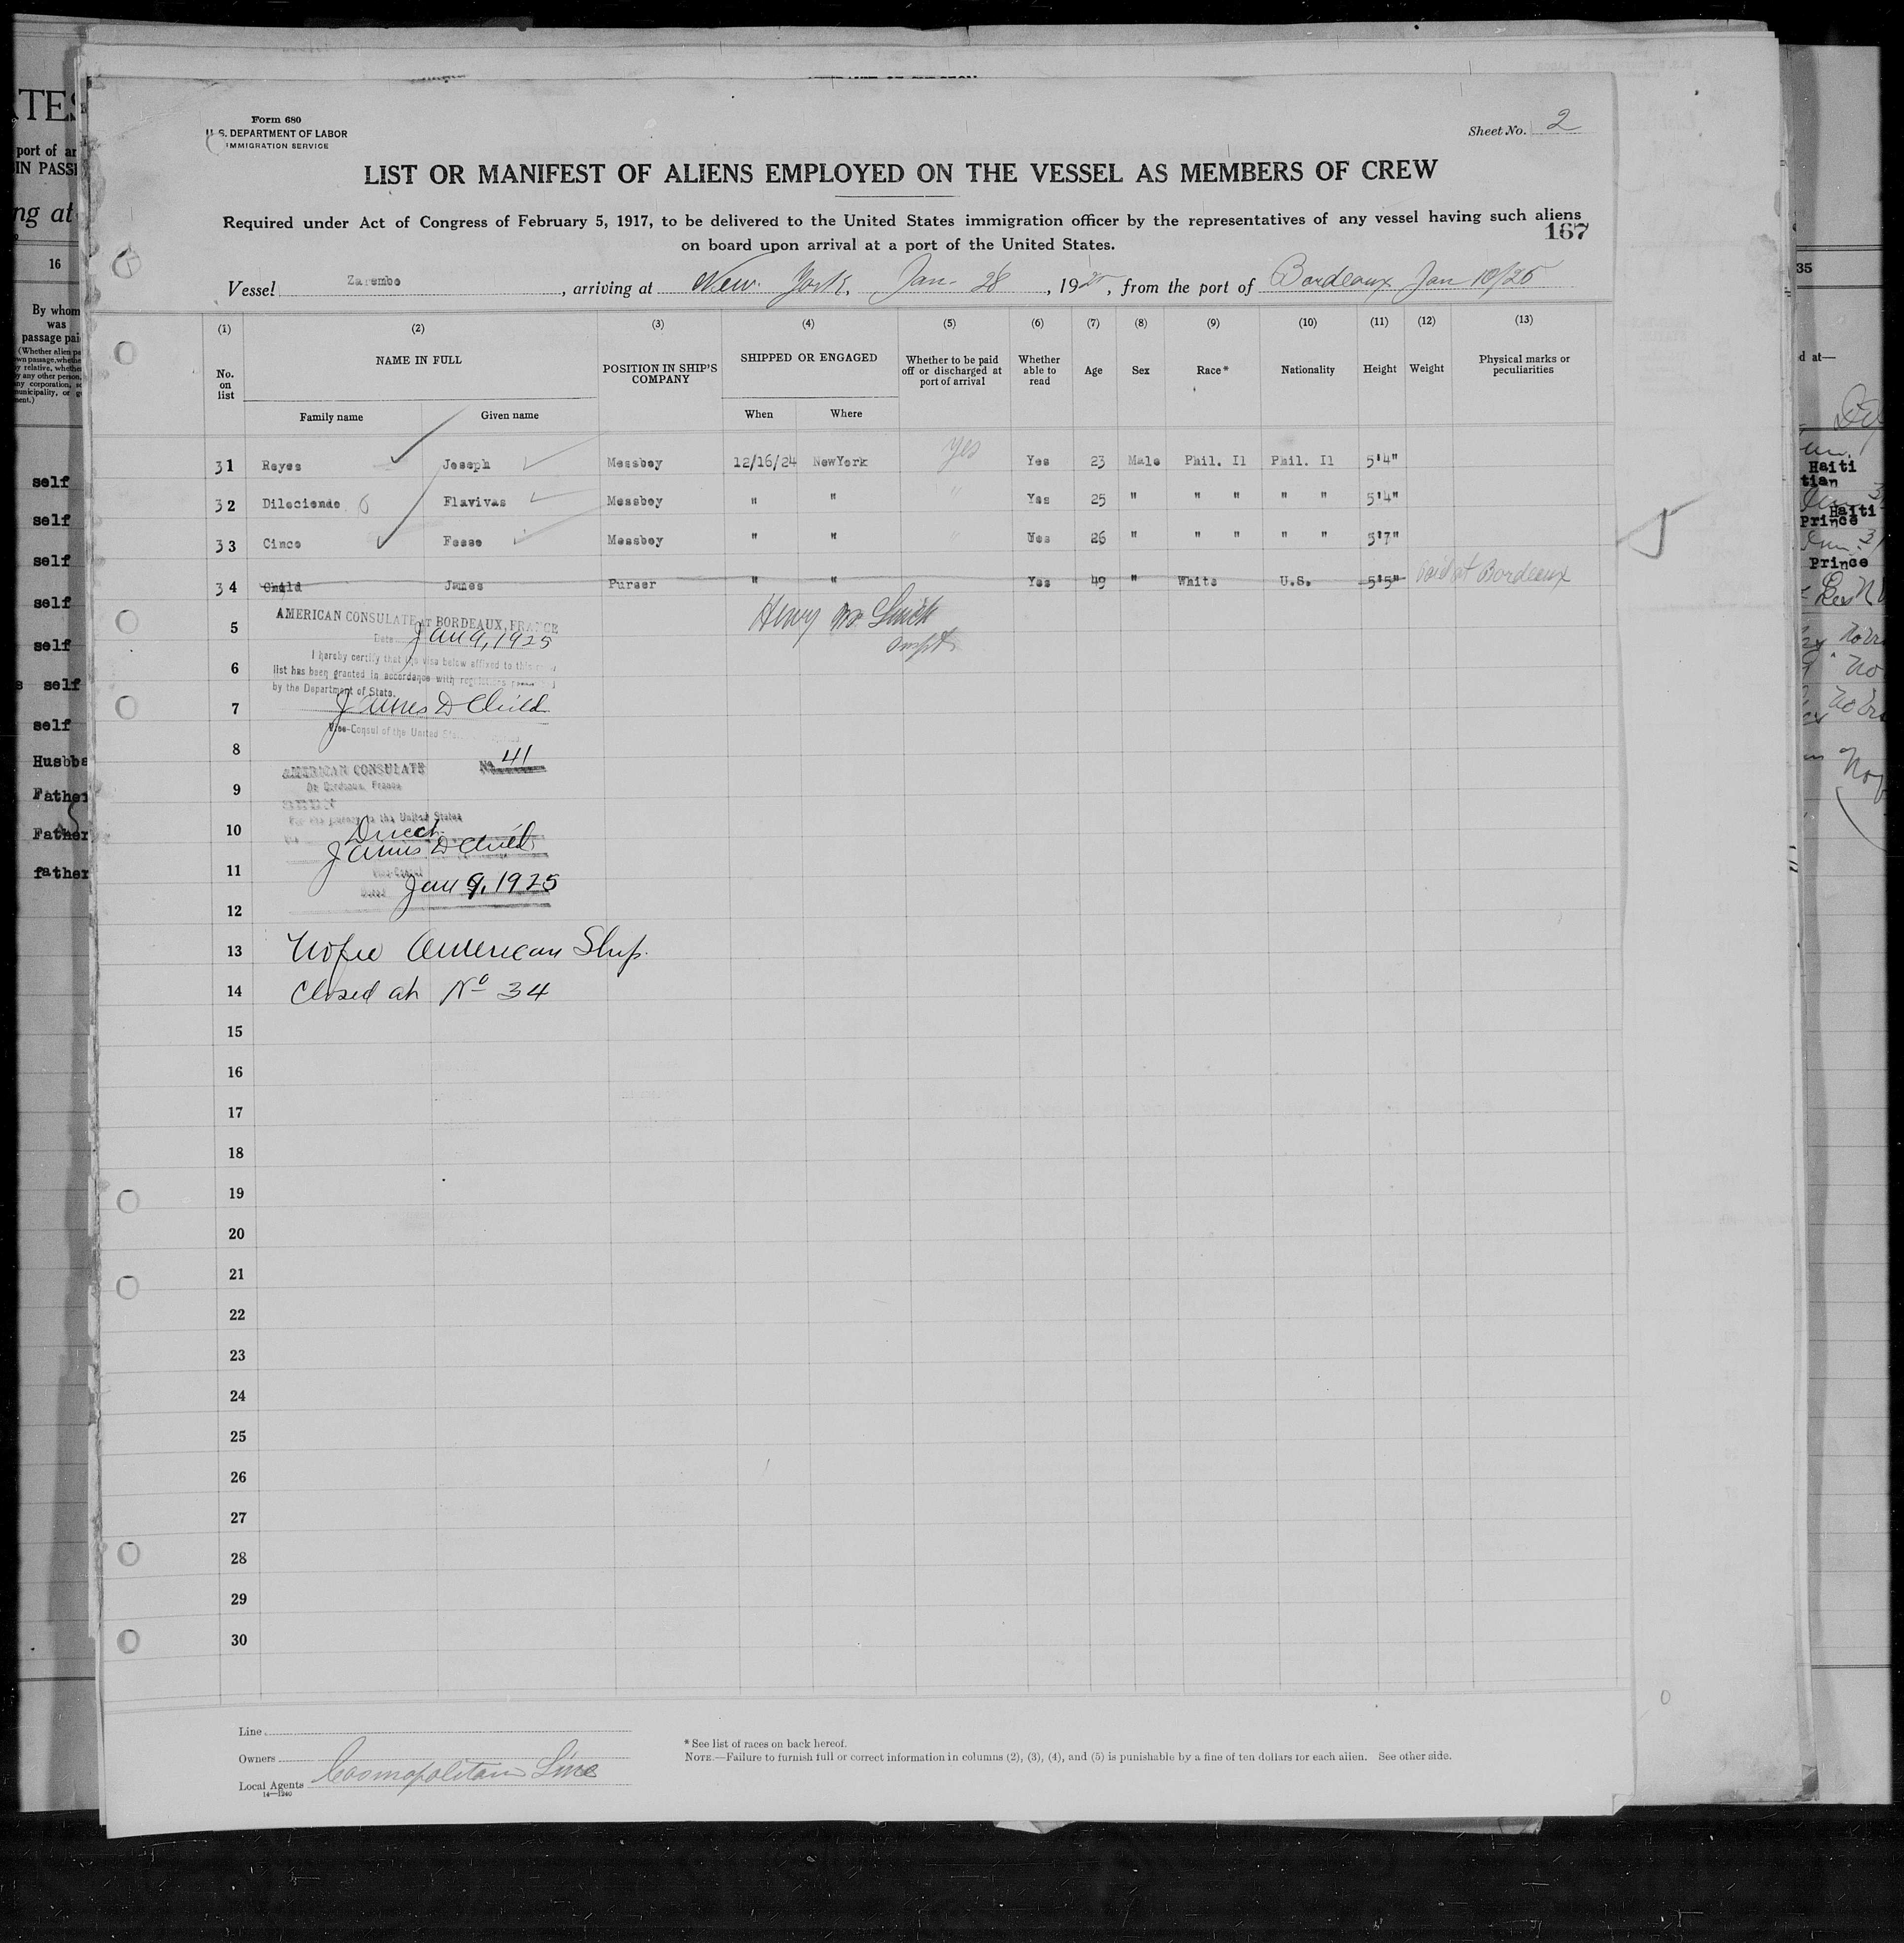 Form 680
U. S. DEPARTMENT OF LABOR
IMMIGRATION SERVICE
Sheet No. 2
LIST OR MANIFEST OF ALIENS EMPLOYED ON THE VESSEL AS MEMBERS OF CREW
Required under Act of Congress of February 5, 1917, to be delivered to the United States immigration officer by the representatives of any vessel having such aliens
on board upon arrival at a port of the United States.
167
Vessel Zarembo, arriving at New York, Jan. 28, 1925, from the port of Bordeaux Jan 10/25
(1) (2) (3) (4) (5) (6) (7) (8) (9) (10) (11) (12) (13)
No. on list NAME IN FULL POSITION IN SHIP'S COMPANY SHIPPED OR ENGAGED Whether to be paid off or discharged at port of arrival Whether able to read Age Sex Race* Nationality Height Weight Physical marks or peculiarities
Family name Given name When Where
31 Reyes Joseph Messboy 12/16/24 NewYork yes Yes 23 Male Phil. Il Phil. Il 5'4"
32 Flavivas Messboy " " " Yes 25 " " " " " 5'4"
33 Cinco Messboy " " " Yes 26 " " " " " 5'7"
34 Child James Purser " " Yes 49 " White U.S. 5'5" Paid at Bordeaux
5 AMERICAN CONSULATE AT BORDEAUX, FRANCE
Date Jan 9, 1925
Henry
6 I hereby certify that the visa below affixed to this crew
list has been granted in accordance with regulations
by the Department of State.
7 James D Child
Vice-Consul of the United States
8 No. 41
AMERICAN CONSULATE
9 Bordeaux, France
the United States
10 Direct
James D Child
11 Vice-Consul
Dated Jan 9, 1925
12
13 No fee American Ship.
14 Closed at No 34
15
16
17
18
19
20
21
22
23
24
25
26
27
28
29
30
Line
Owners
Local Agents Cosmopolitan Line
14—1240
* See list of races on back hereof.
NOTE.—Failure to furnish full or correct information in columns (2), (3), (4), and (5) is punishable by a fine of ten dollars for each alien. See other side.
16
By whom
was
passage paid
self
self
self
self
self
self
self
Father
father
35
Haiti
Haiti
Prince
Prince